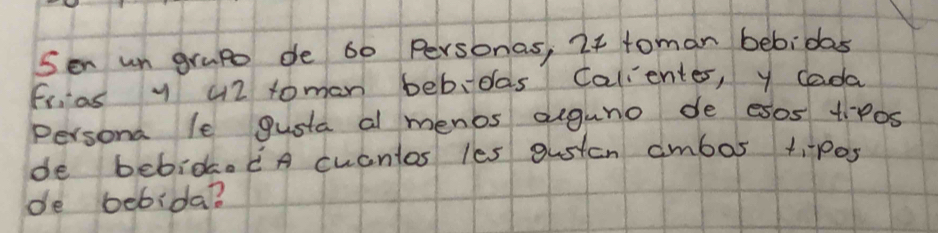 5 en un grupo de 60 Personas, 27 toman bebidas
frias y 42 toman bebidas Calientes, y cada
Persona le gusta al menos alguno de esos tipos
de bebida. ¿A cuantos les gustan ambos tipos
de bebida?